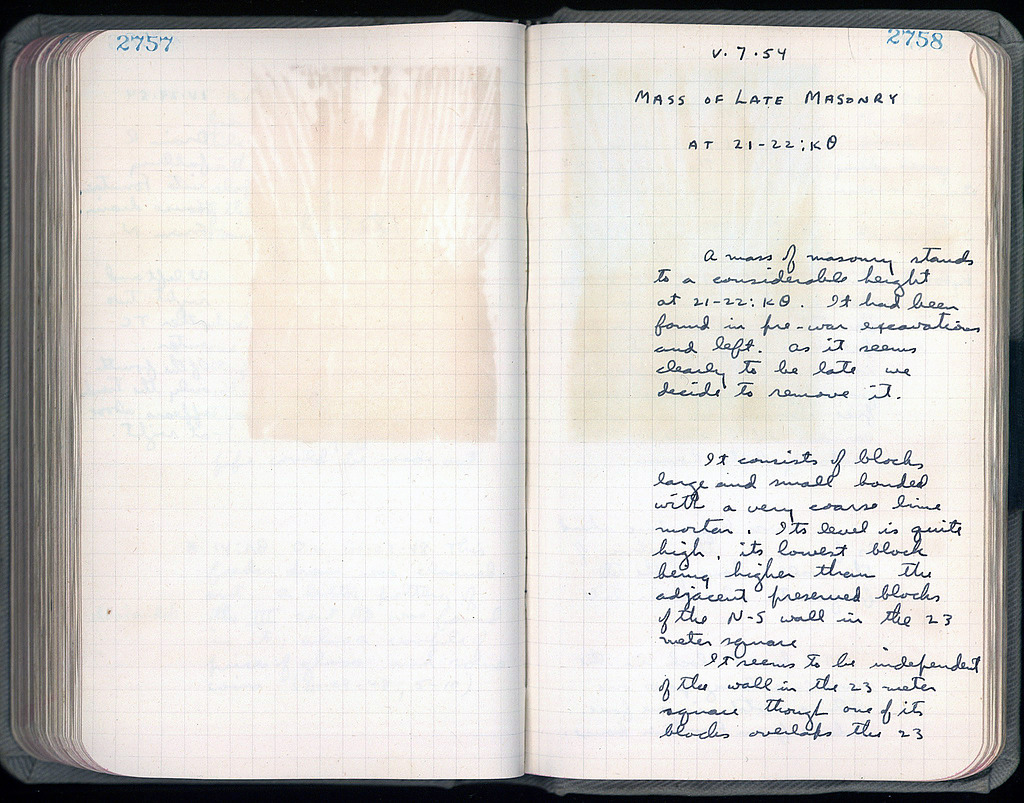 2757
2758
V.7.54
MASS OF LATE MASONRY
AT 21-22:KΘ
A mass of masonry stands
to a considerable height
at 21-22:KΘ. It had been
found in pre-war excavations
and left. As it seems
clearly to be late we
decide to remove it.
It consists of blocks
large and small bonded
with a very coarse lime
mortar. Its level is quite
high, its lowest block
being higher than the
adjacent preserved blocks
of the N-S wall in the 23
meter square
It seems to be independent
of the wall in the 23 meter
square though one of its
blocks overlaps the 23